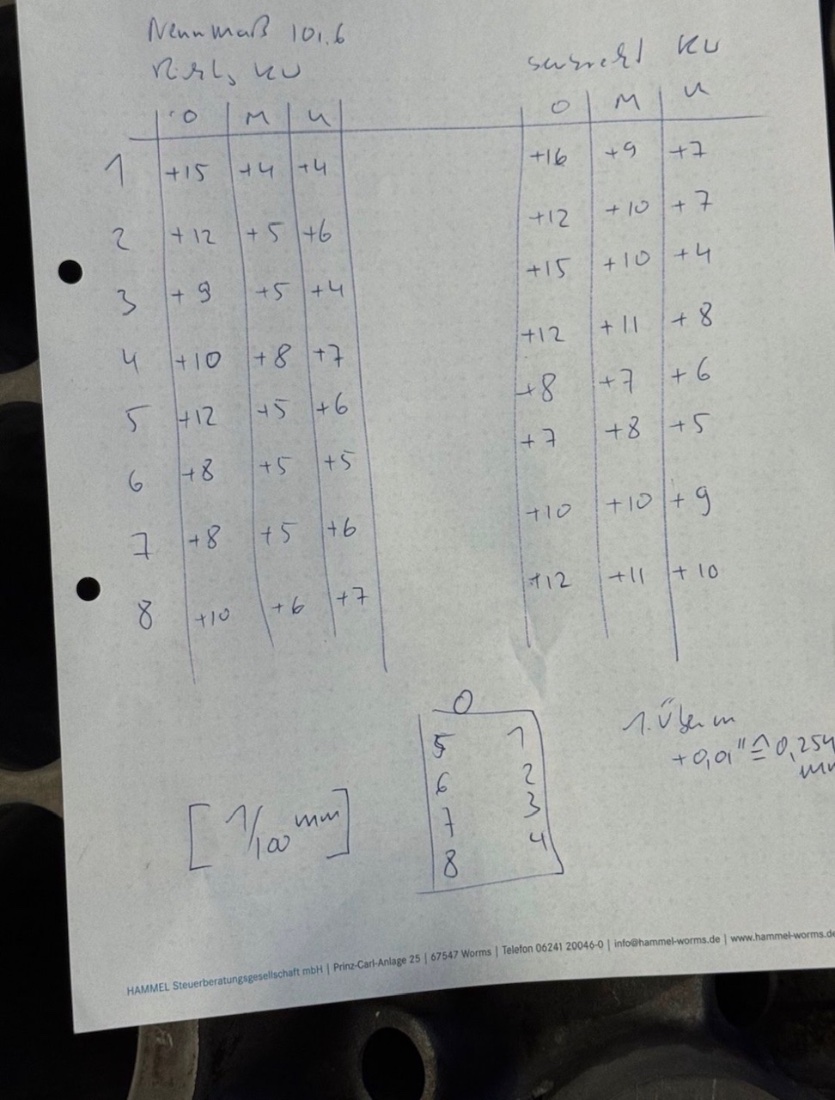 Nennmaß 101,6
KW senkrecht KW
O M U O M U
1 +15 +4 +4 +16 +9 +7
2 +12 +5 +6 +12 +10 +7
3 +9 +5 +4 +15 +10 +4
4 +10 +8 +7 +12 +11 +8
5 +12 +5 +6 +8 +7 +6
6 +8 +5 +5 +7 +8 +5
7 +8 +5 +6 +10 +10 +9
8 +10 +6 +7 +12 +11 +10
O
5 1
6 2
7 3
8 4
[1/100 mm]
1. Überm
+0,01" ≙ 0,254
mm
HAMMEL Steuerberatungsgesellschaft mbH | Prinz-Carl-Anlage 25 | 67547 Worms | Telefon 06241 20046-0 | info@hammel-worms.de | www.hammel-worms.de